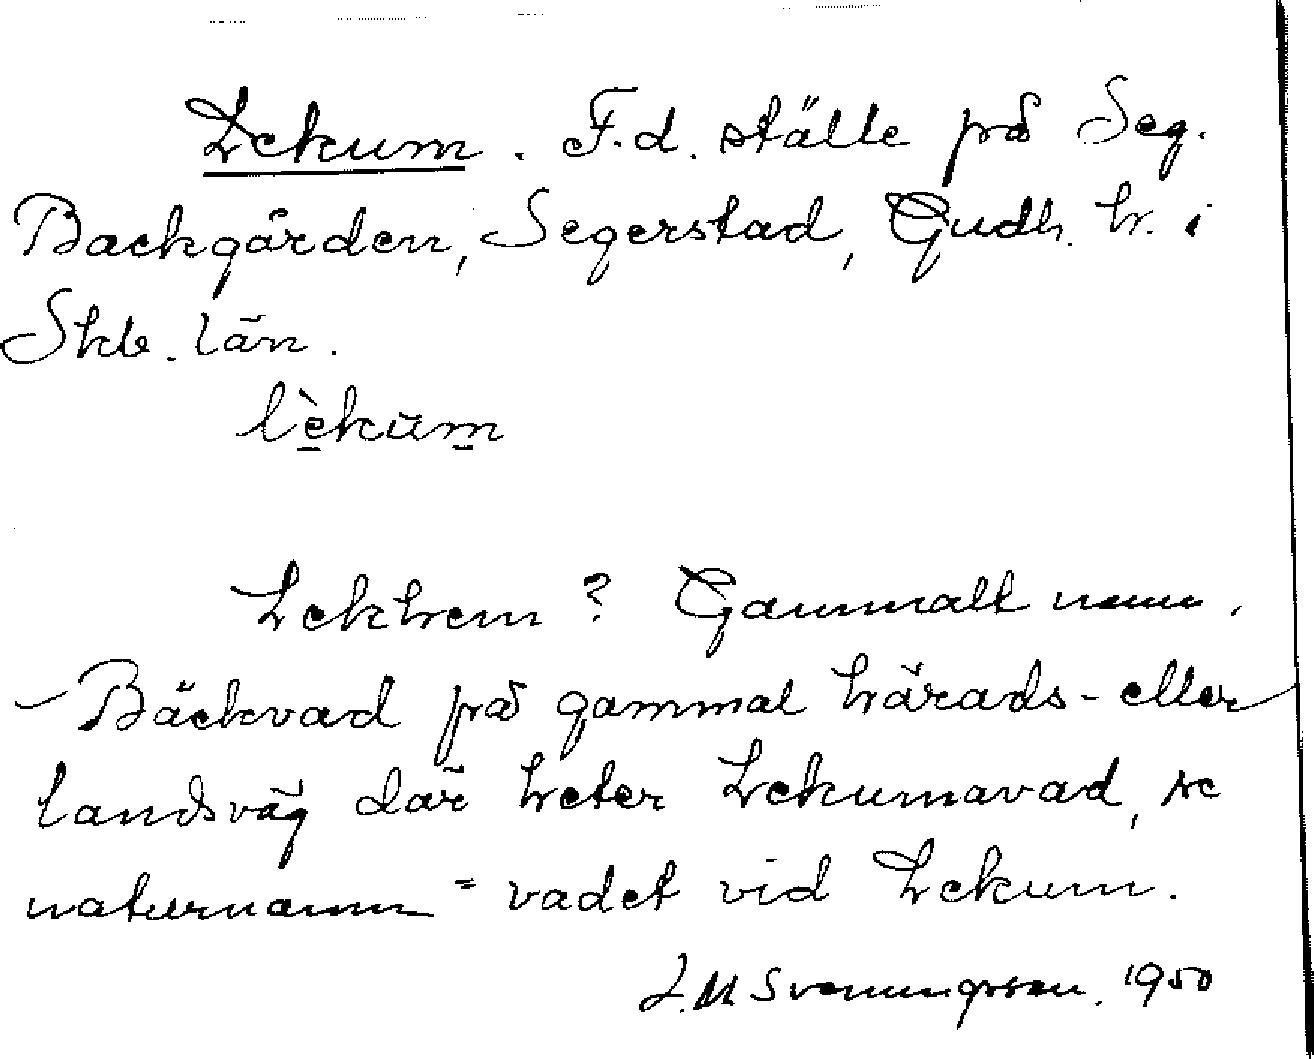 Lekum. F.d. ställe på Seg.
Backgården, Segerstad, Gudh. h. i
Skb. län.
lèkum
Lekhem? Gammalt namn.
Bäckvad på gammal härads- eller
landsväg där heter Lekumavad, se
naturnamn = vadet vid Lekum.
J.M Svenungsson. 1950